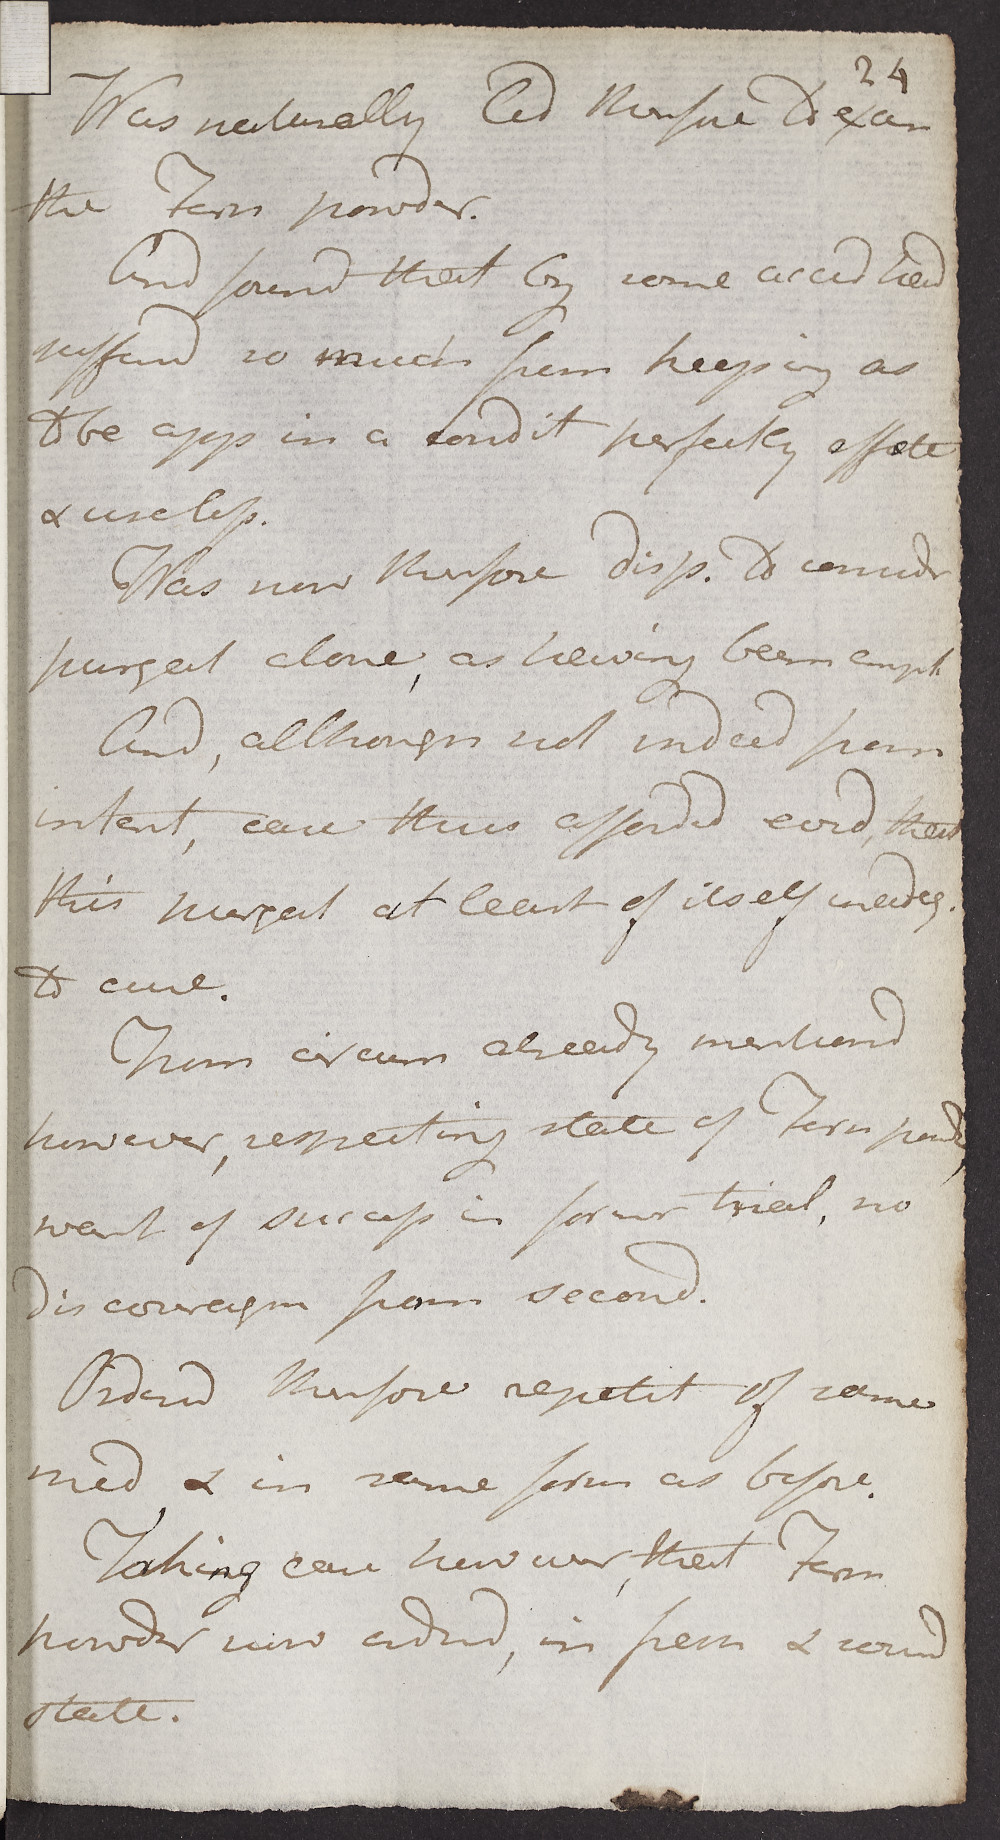 24
Was naturally led therefore to exam
the Fern powder.
And found that by some accid had
sufferd so much from keeping as
to be app in a condit perfectly effete
& useless.
Was now therefore disp. to consider
purgat alone, as having been empl
And, although not indeed from
intent, case thus afforded evid, that
this purgat at least of itself inadeq.
to cure.
From circum already mentiond
however, respecting state of Fern powd,
want of success in former trial, no
discouragm from second.
Orderd therefore repetit of same
med, & in same form as before.
Taking care however, that Fern
powder now orderd, in fresh & sound
state.